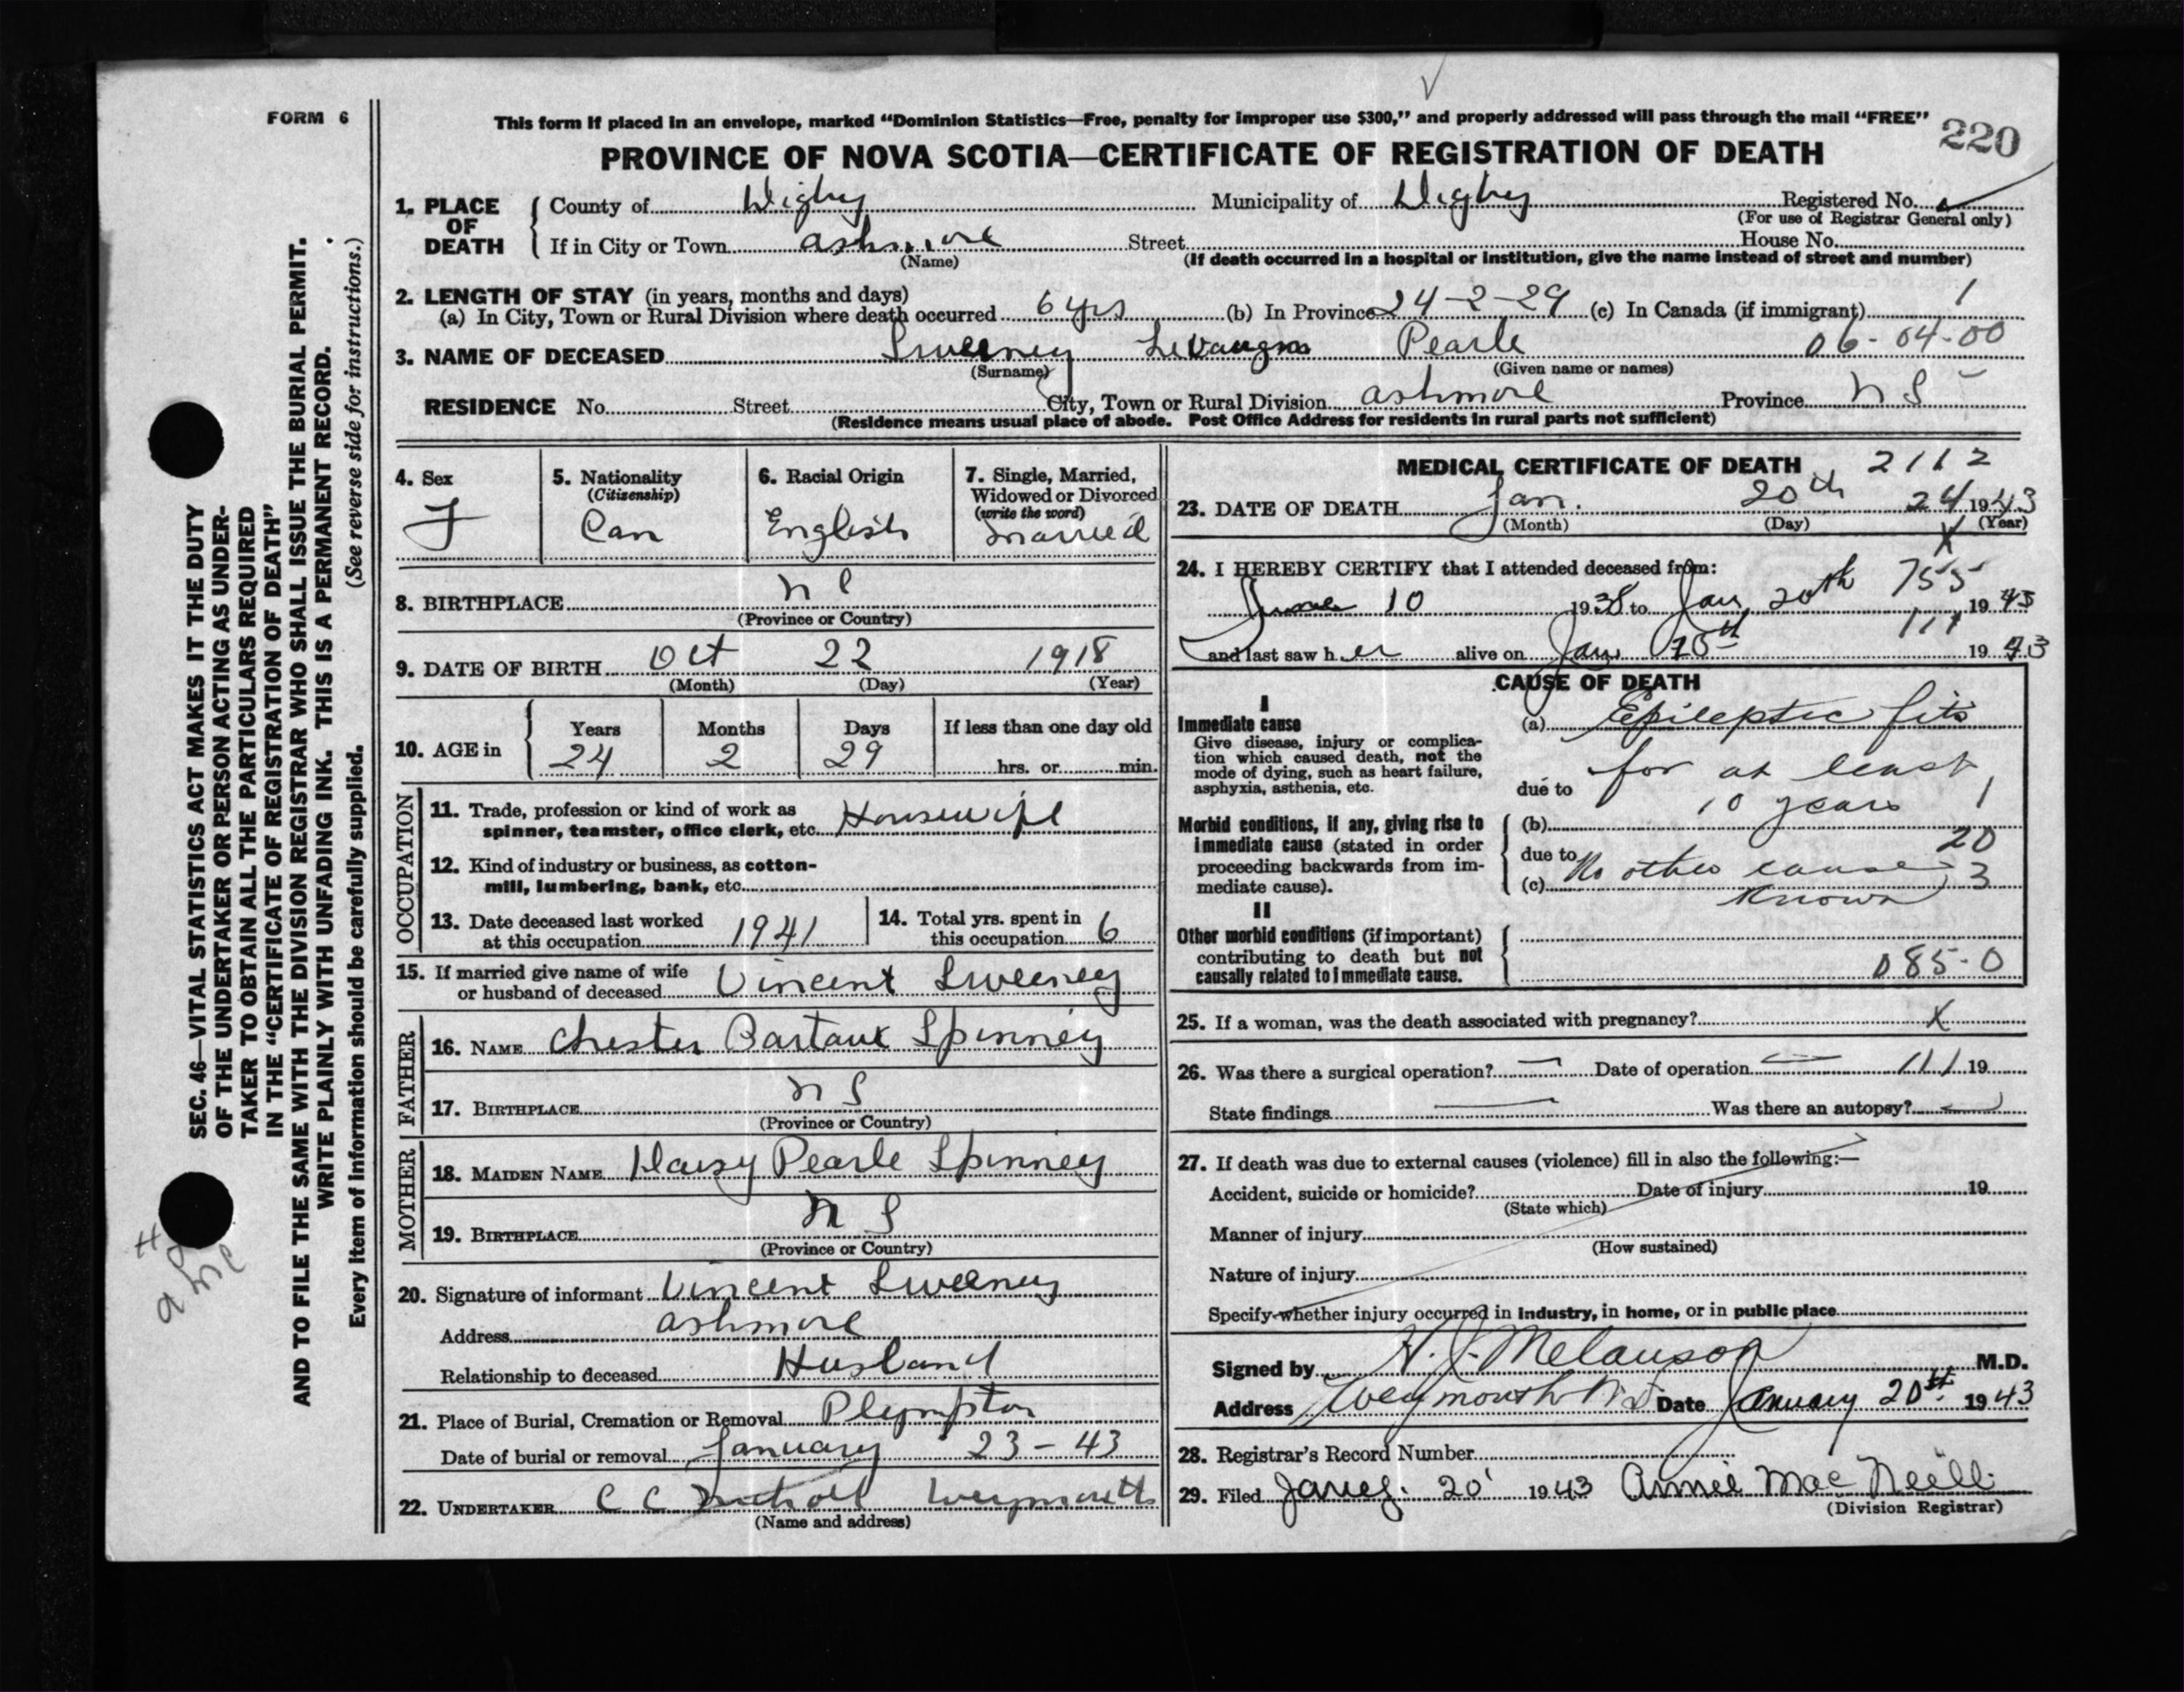 FORM 6
This form if placed in an envelope, marked "Dominion Statistics—Free, penalty for improper use $300," and properly addressed will pass through the mail "FREE"
220
PROVINCE OF NOVA SCOTIA—CERTIFICATE OF REGISTRATION OF DEATH
1. PLACE OF DEATH
County of Digby Municipality of Digby Registered No.
(For use of Registrar General only)
If in City or Town Ashmore Street House No.
(Name) (If death occurred in a hospital or institution, give the name instead of street and number)
2. LENGTH OF STAY (in years, months and days)
(a) In City, Town or Rural Division where death occurred 6 yrs (b) In Province 24-2-29 (c) In Canada (if immigrant) 1
3. NAME OF DECEASED Sweeney Pearle 06-04-00
(Surname) (Given name or names)
RESIDENCE No. Street City, Town or Rural Division Ashmore Province N S
(Residence means usual place of abode. Post Office Address for residents in rural parts not sufficient)
4. Sex
F
5. Nationality
(Citizenship)
Can
6. Racial Origin
English
7. Single, Married,
Widowed or Divorced
(write the word)
Married
8. BIRTHPLACE N S
(Province or Country)
9. DATE OF BIRTH Oct 22 1918
(Month) (Day) (Year)
10. AGE in
Years Months Days If less than one day old
24 2 29 hrs. or min.
OCCUPATION
11. Trade, profession or kind of work as
spinner, teamster, office clerk, etc. Housewife
12. Kind of industry or business, as cotton-
mill, lumbering, bank, etc.
13. Date deceased last worked
at this occupation 1941
14. Total yrs. spent in
this occupation 6
15. If married give name of wife
or husband of deceased Vincent Sweeney
FATHER
16. NAME Chester Bartaux Spinney
17. BIRTHPLACE N S
(Province or Country)
MOTHER
18. MAIDEN NAME Daisy Pearle Spinney
19. BIRTHPLACE N S
(Province or Country)
20. Signature of informant Vincent Sweeney
Address Ashmore
Relationship to deceased Husband
21. Place of Burial, Cremation or Removal Plympton
Date of burial or removal January 23-43
22. UNDERTAKER C C Weymouth
(Name and address)
MEDICAL CERTIFICATE OF DEATH 2112
23. DATE OF DEATH Jan. 20th 24 1943
(Month) (Day) (Year)
X
24. I HEREBY CERTIFY that I attended deceased from: 755
June 10 1938 to Jan 20th 1943
111
and last saw her alive on Jan 1943
CAUSE OF DEATH
I
Immediate cause
Give disease, injury or complica-
tion which caused death, not the
mode of dying, such as heart failure,
asphyxia, asthenia, etc.
(a) Epileptic fits
due to for at least
10 years 1
Morbid conditions, if any, giving rise to
immediate cause (stated in order
proceeding backwards from im-
mediate cause).
(b)
20
due to No other cause
(c) 3
known
II
Other morbid conditions (if important)
contributing to death but not
causally related to immediate cause.
085-0
25. If a woman, was the death associated with pregnancy? X
26. Was there a surgical operation? — Date of operation — 111 19
State findings — Was there an autopsy? —
27. If death was due to external causes (violence) fill in also the following:—
Accident, suicide or homicide? Date of injury 19
(State which)
Manner of injury
(How sustained)
Nature of injury
Specify whether injury occurred in industry, in home, or in public place
Signed by H. J. Melanson M.D.
Address Weymouth N S Date January 20th 1943
28. Registrar's Record Number
29. Filed Jany. 20 1943 Annie MacNeill
(Division Registrar)
SEC. 46—VITAL STATISTICS ACT MAKES IT THE DUTY
OF THE UNDERTAKER OR PERSON ACTING AS UNDER-
TAKER TO OBTAIN ALL THE PARTICULARS REQUIRED
IN THE "CERTIFICATE OF REGISTRATION OF DEATH"
AND TO FILE THE SAME WITH THE DIVISION REGISTRAR WHO SHALL ISSUE THE BURIAL PERMIT.
WRITE PLAINLY WITH UNFADING INK. THIS IS A PERMANENT RECORD.
Every item of information should be carefully supplied. (See reverse side for instructions.)